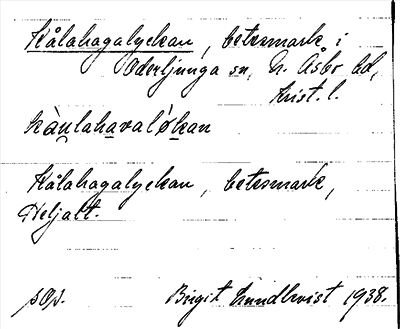 Kålahagalyckan, betesmark i
Oderljunga sn, N. Åsbo hd,
Krist. l.
kàulahavalỳkan
Kålahagalyckan, betesmark,
Heljalt.
sOp. Birgit Lundkvist 1938.